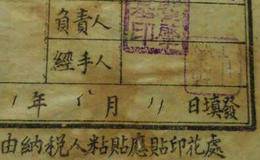 負責人
經手人
1年 月11日填發
由納税人粘貼應貼印花處